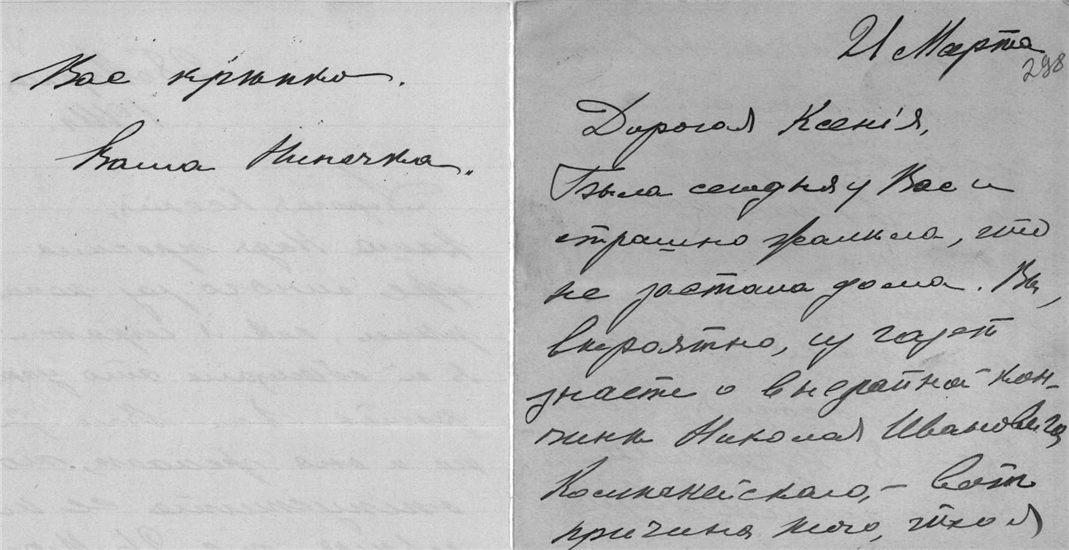 Вас крѣпко.
Ваша Ниночка.
21 Марта
298
Дорогая Ксенія,
Была сегодня у Вас и
страшно жалѣла, что
не застала дома. Вы,
вѣроятно, из газет
знаете о внезапной кон-
чинѣ Николая Ивановича
Компанейскаго, – вот
причина того, что я